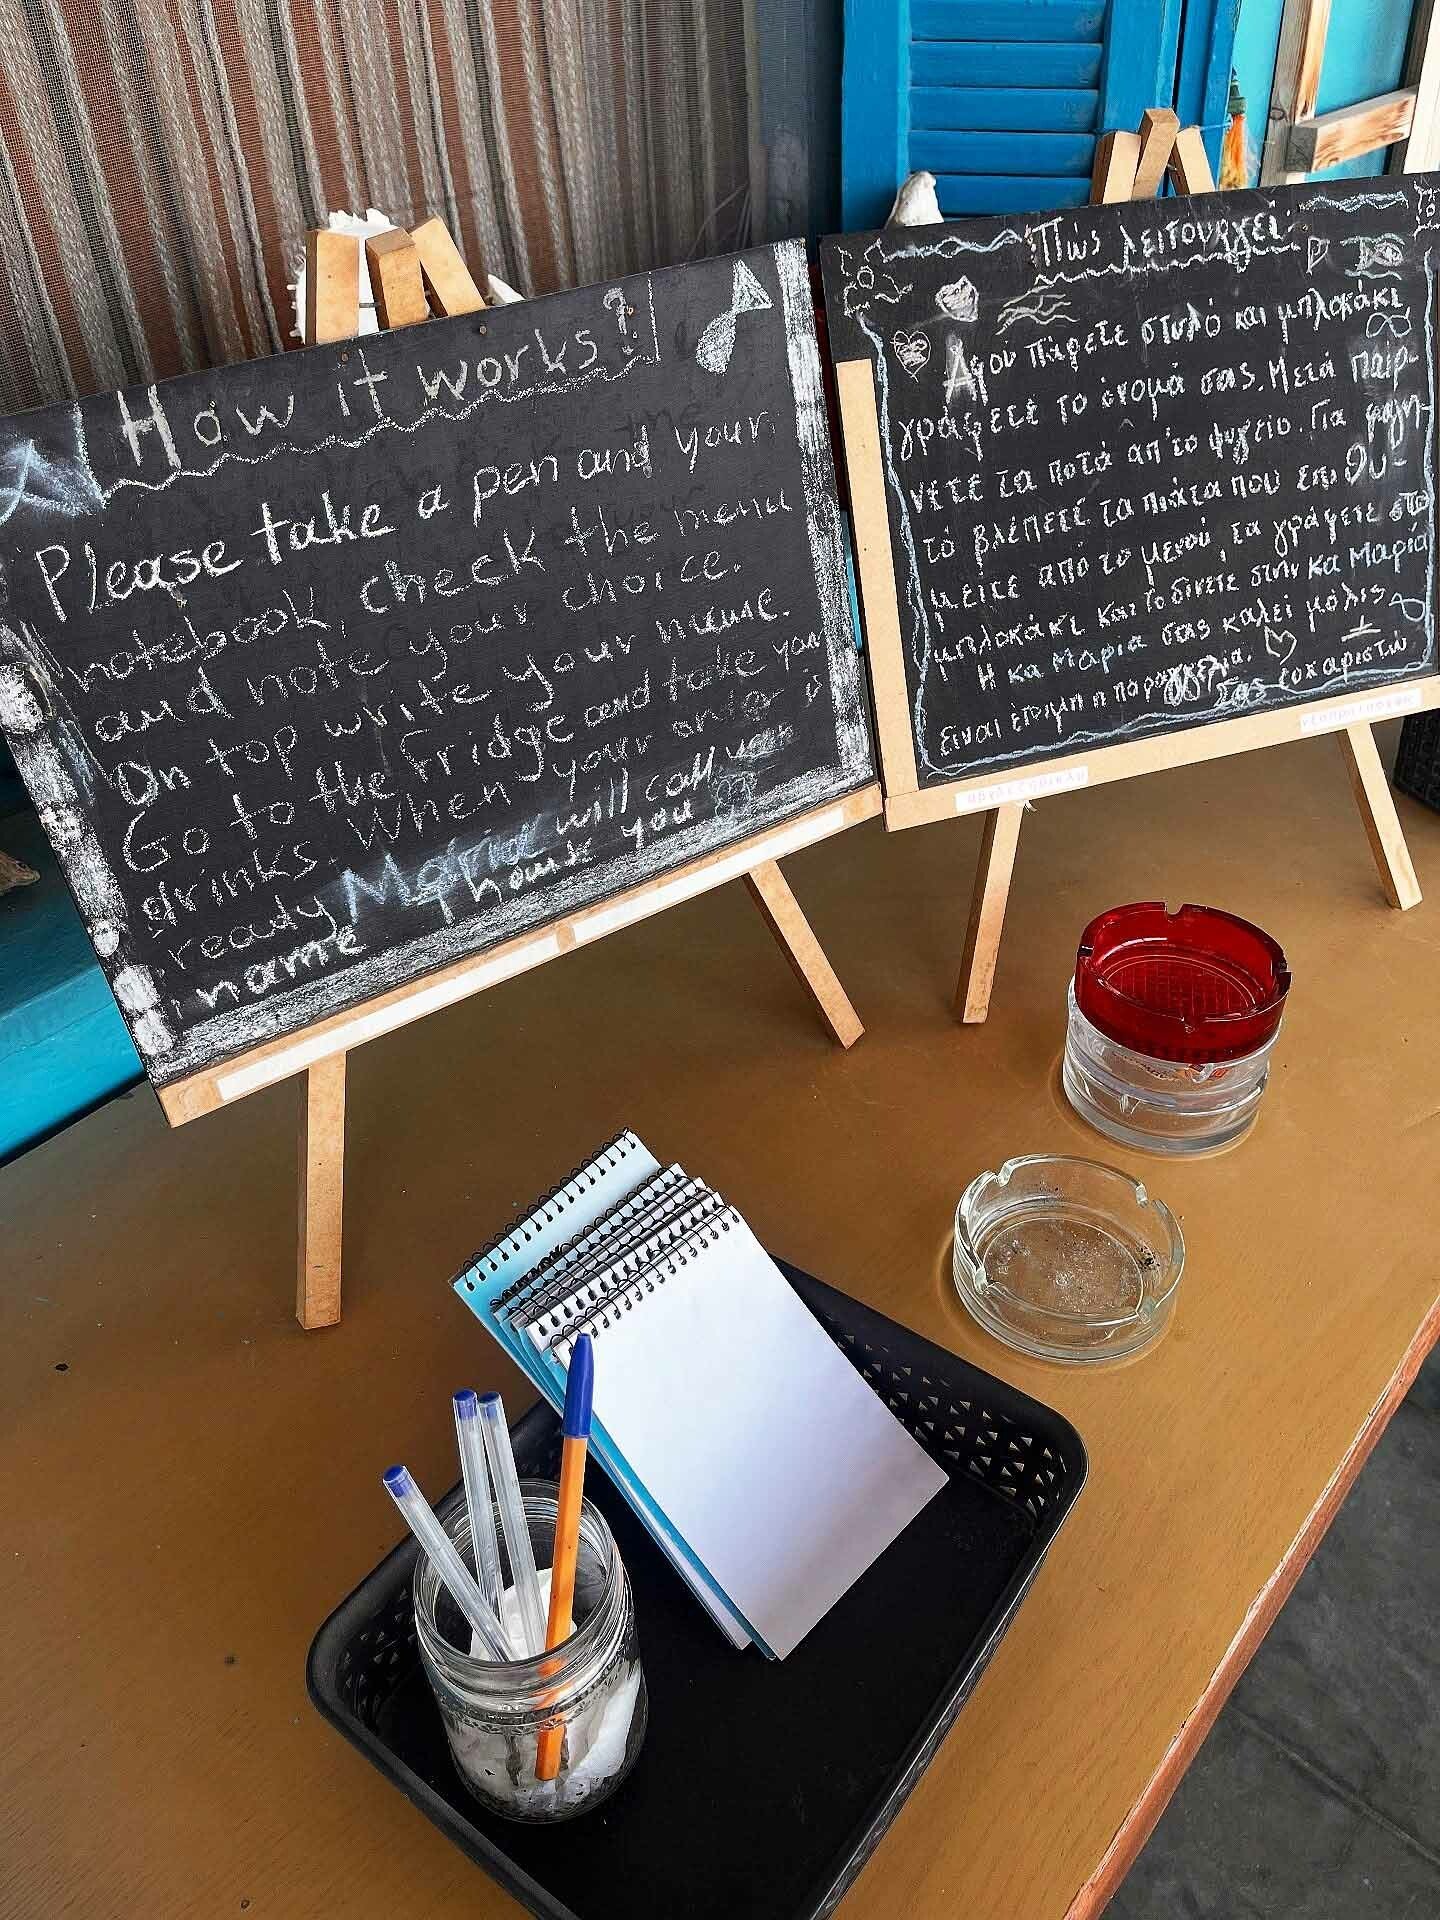 How it works?
Please take a pen and your
notebook, check the menu
and note your choice.
On top write your name.
Go to the fridge and take your
drinks. When your order is
ready Maria will call your
name Thank you
Πώς λειτουργεί
Αφού πάρετε στυλό και μπλοκάκι
γράφετε το όνομά σας. Μετά παίρ-
νετε τα ποτά απ'το ψυγείο. Για φαγη-
τό βλέπετε τα πιάτα που επιθυ-
μείτε από το μενού, τα γράφετε στο
μπλοκάκι και το δίνετε στην κα Μαρία
Η κα Μαρία σας καλεί μόλις
είναι έτοιμη η παραγγελία.
Σας ευχαριστώ